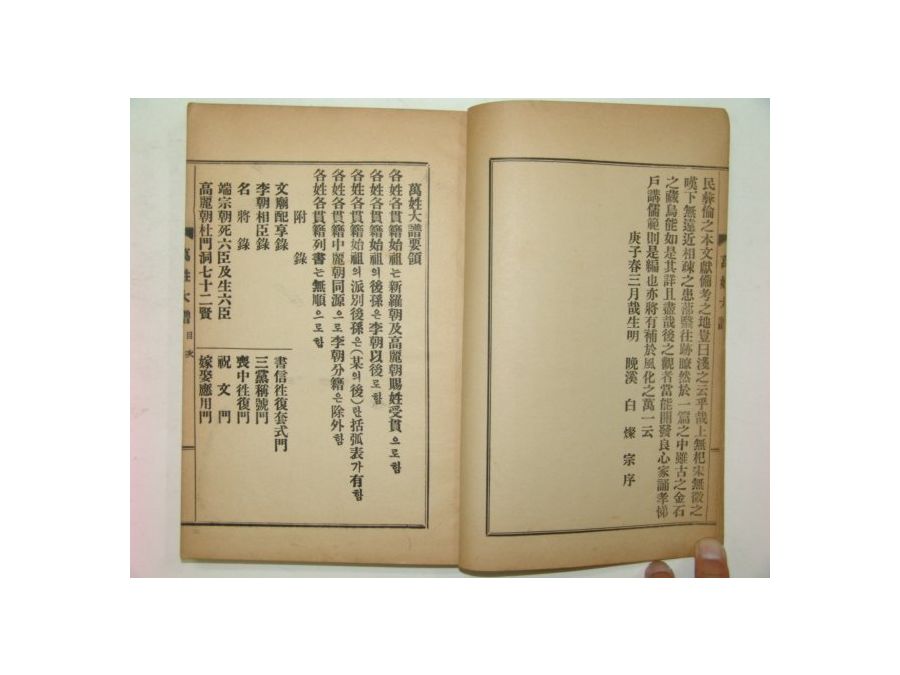 民彛倫之本文獻備考之地豈曰淺之云乎哉上無杞宋無徵之
嘆下無遠近相疎之患蔀翳往跡瞭然於一篇之中雖古之金石
之藏烏能如是其詳且盡哉後之觀者當能開發良心家誦孝悌
戶講儒範則是編也亦將有補於風化之萬一云
庚子春三月哉生明 晚溪 白燦宗序
萬姓大譜
萬姓大譜要領
各姓各貫籍始祖는新羅朝及高麗朝賜姓受貫으로함
各姓各貫籍始祖의後孫은李朝以後로함
各姓各貫籍始祖의派別後孫은(某의後)란括弧表가有함
各姓各貫籍中麗朝同源으로李朝分籍은除外함
各姓各貫籍列書는無順으로함
附錄
文廟配享錄 書信徃復套式門
李朝相臣錄 三黨稱號門
名將錄 喪中徃復門
端宗朝死六臣及生六臣 祝文門
高麗朝杜門洞七十二賢 嫁娶應用門
萬姓大譜 目次